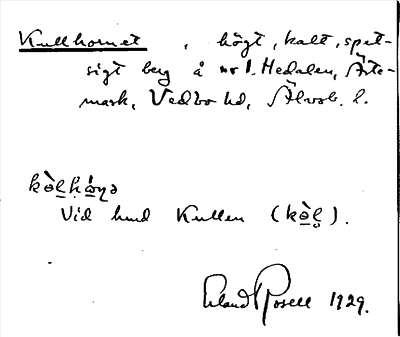 Kullhornet , högt, kalt, spet-
sigt berg å nr 1. Hedalen, Ärte-
mark, Vedbo hd, Älvsb. l.
kò̱l̥hò̱ṇə
Vid hmd Kullen (kò̱l̥).
Erland Rosell 1929.